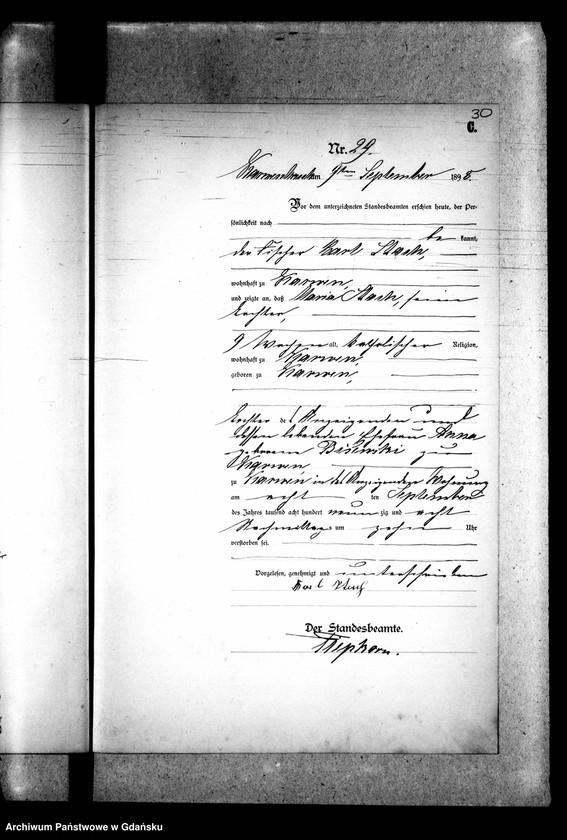 30
C.
Nr. 29.
Karwenbruch am 9ten September 1898.
Vor dem unterzeichneten Standesbeamten erschien heute, der Per-
sönlichkeit nach
be kannt,
der Fischer Karl
wohnhaft zu Karwen,
und zeigte an, daß Maria seine
Tochter,
9 Wochen alt, katholischer Religion,
wohnhaft zu Karwen,
geboren zu Karwen,
Tochter des Anzeigenden und
dessen lebenden Ehefrau Anna
geborenen zu
Karwen
zu Karwen in des Anzeigenden Wohnung
am acht ten September
des Jahres tausend acht hundert neun zig und acht
Nachmittags um zehn Uhr
verstorben sei.
Vorgelesen, genehmigt und unterschrieben
Karl
Der Standesbeamte.
Archiwum Państwowe w Gdańsku